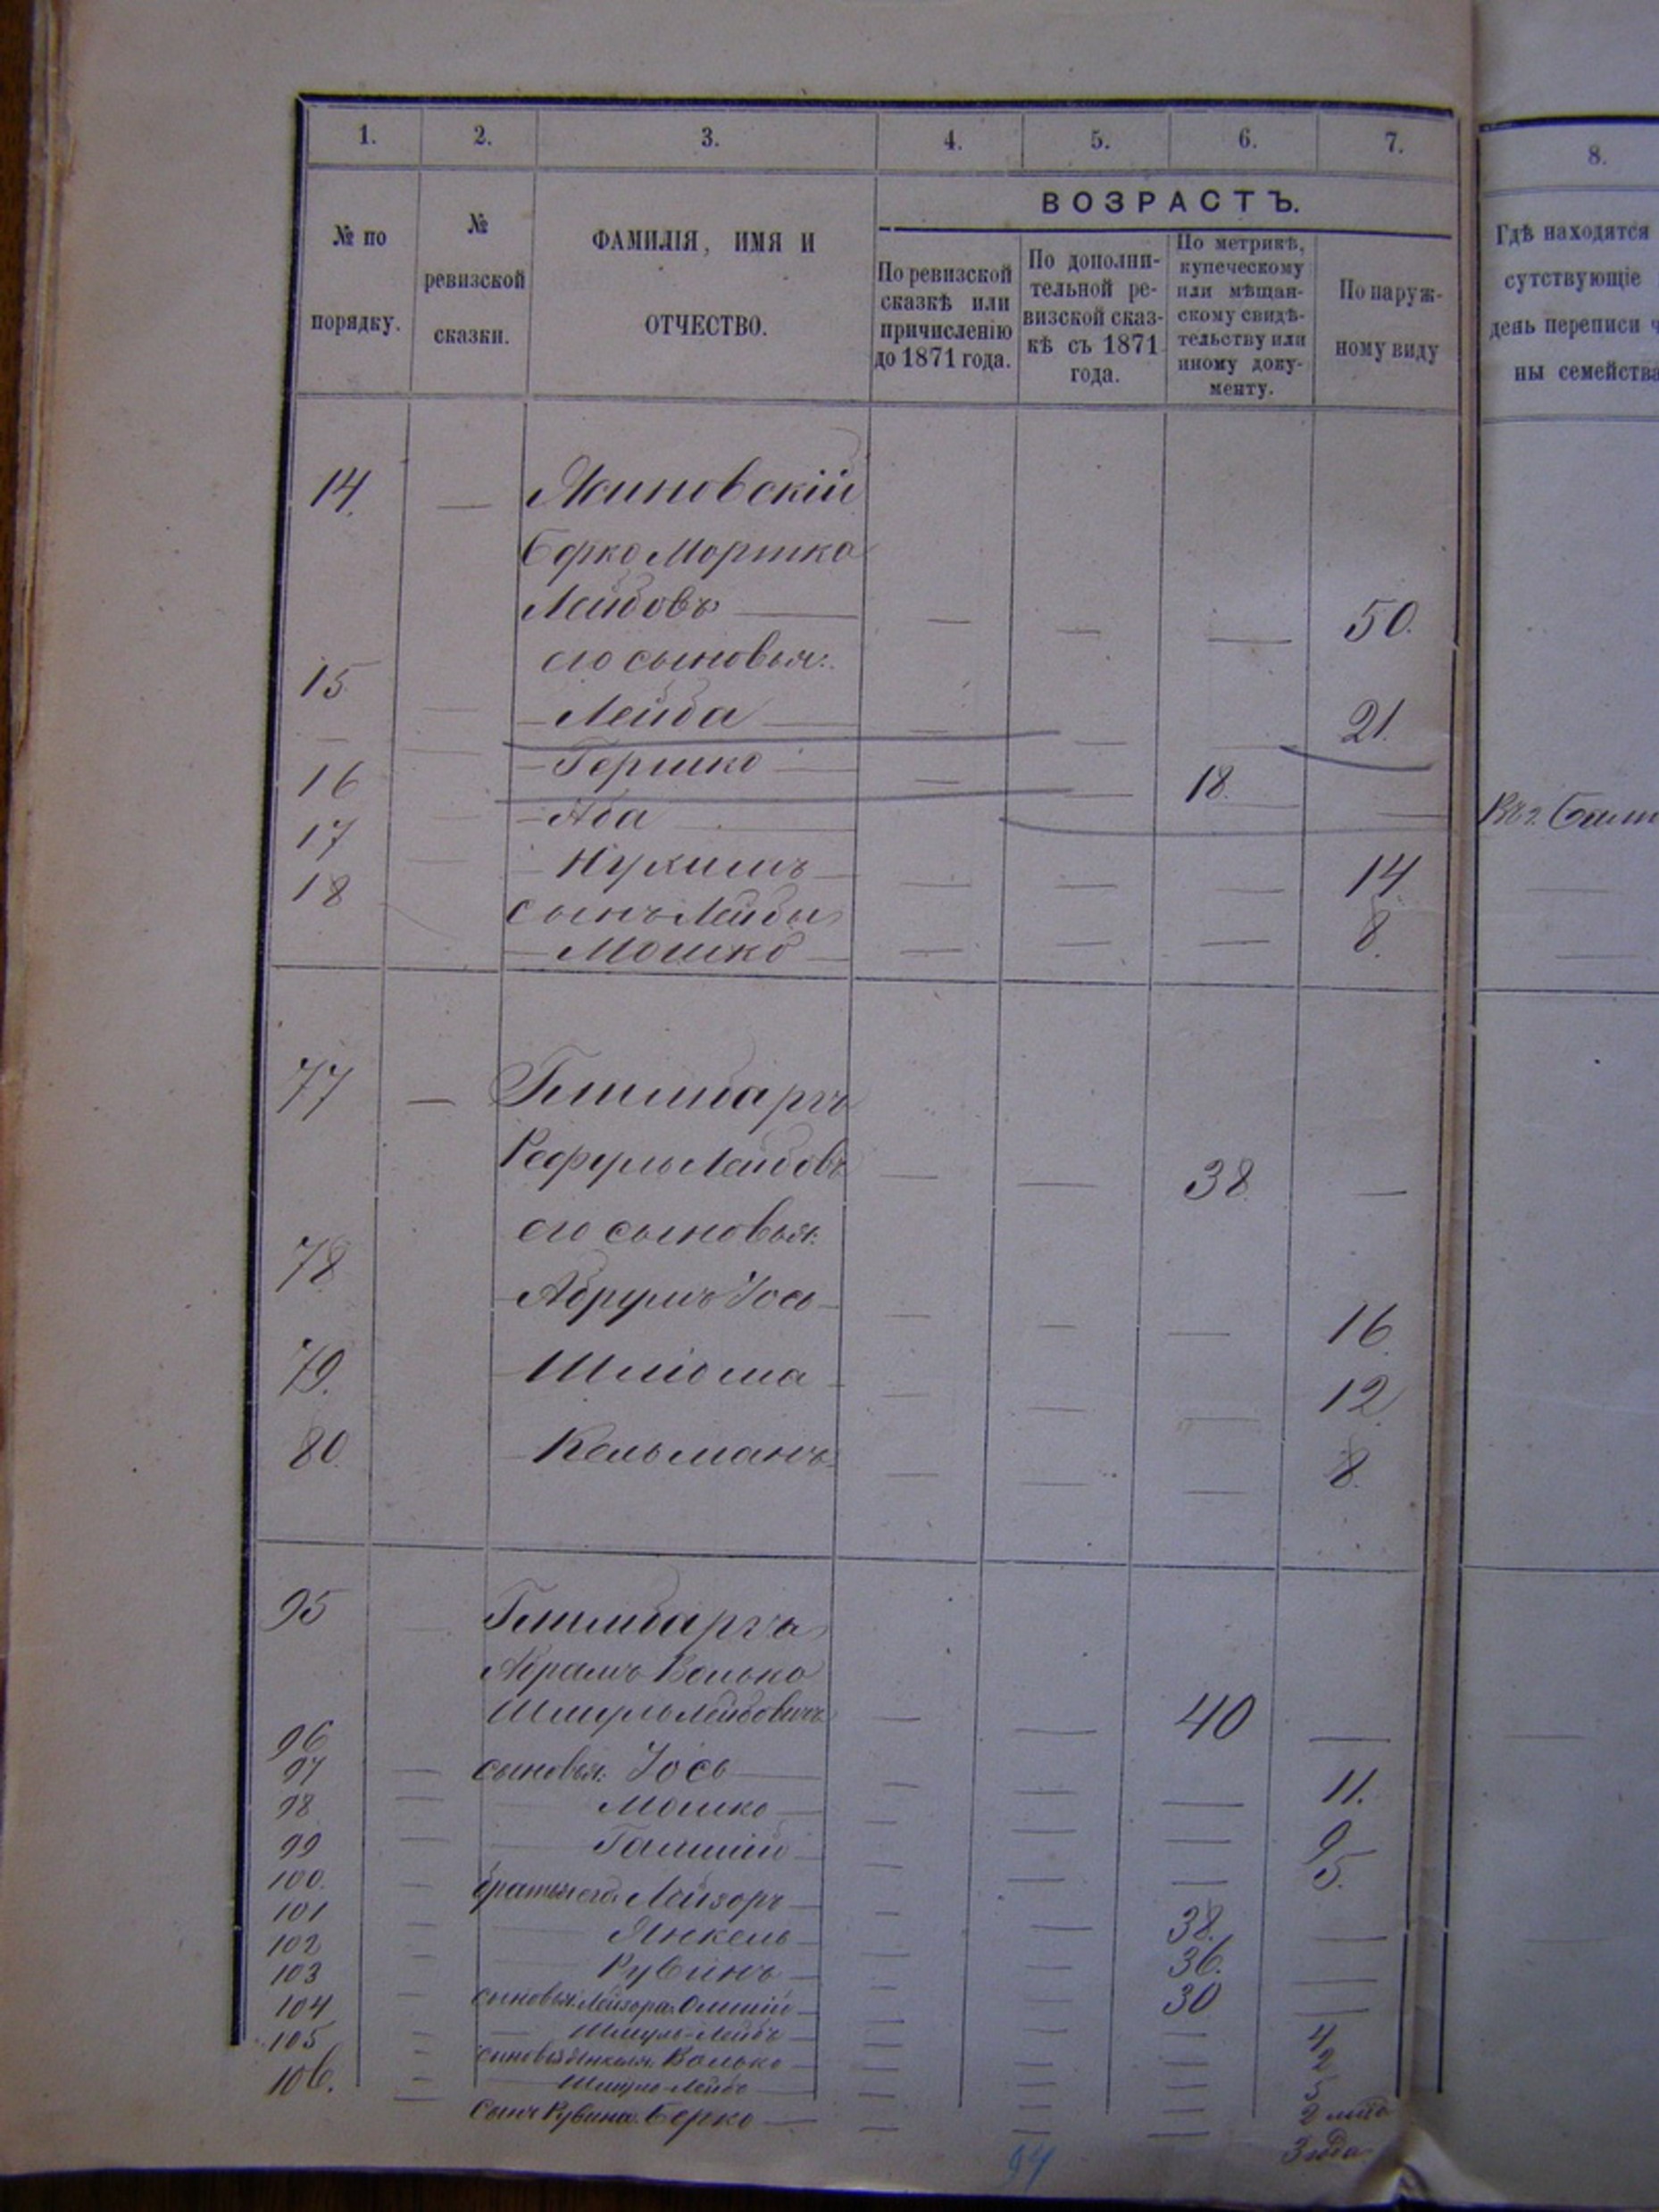 1. 2. 3. 4. 5. 6. 7. 8.
ВОЗРАСТЪ.
№ по порядку.
№ ревизской сказки.
ФАМИЛІЯ, ИМЯ И ОТЧЕСТВО.
По ревизской сказкѣ или причисленію до 1871 года.
По дополни-тельной ре-визской сказ-кѣ съ 1871 года.
По метрикѣ, купеческому или мѣщан-скому свидѣ-тельству или иному доку-менту.
По наруж-ному виду
Гдѣ находятся
сутствующіе
день переписи ч
ны семейства
14. — Ясиновскій
Берко Мортка
Лейбовъ — — — — 50.
его сыновья:
15 — Лейба — — — 21.
16 — Гершко — — 18. —
17 — Аба
18 — Нухимъ — — — 14.
сынъ Лейбы
— Мошко — — — 8.
77 —
Лейбовъ — — 38. —
его сыновья:
78 Абрумъ Іось — — — 16.
79. Шліома — — — 12.
80. Кельманъ — — — 8.
95
Абрамъ Волько
Шмуль Лейбовичъ — — 40 —
96 сыновья: Іось — — — 11.
97 Мошко — — — 9
98 — — — 5.
99 братья его: Лейзоръ — — 38. —
100. Янкель — — 36. —
101 Рувинъ — — 30 —
102 сыновья Лейзора — — — 4
103 Шмуль-Лейбъ — — — 2
104 сыновья Янкеля: Волько — — —
105 Шмуль-Лейбъ — — — 2
106. сынъ Рувина Берко — — — 3 года
94